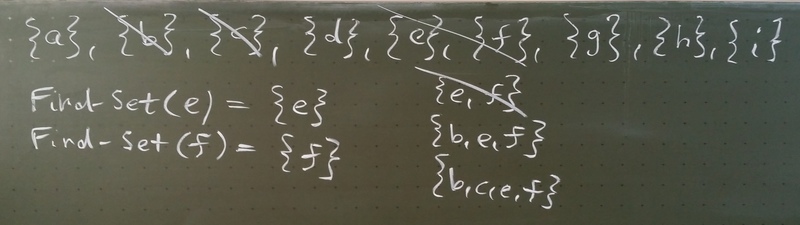 {a}, {b}, {c}, {d}, {e}, {f}, {g}, {h}, {i}
Find-Set(e) = {e}
Find-Set(f) = {f}
{e, f}
{b, e, f}
{b, c, e, f}